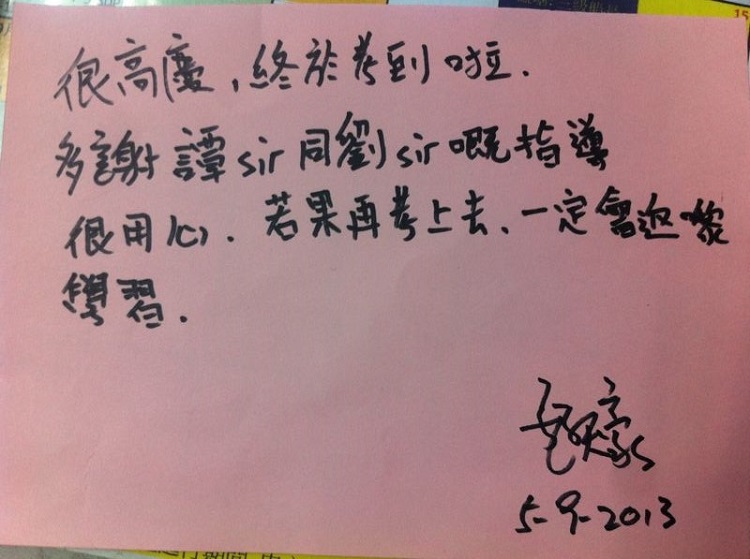 很高慶,終於考到啦.
多謝譚sir同劉sir嘅指導
很用心.若果再考上去、一定會返嚟
學習.
5-9-2013